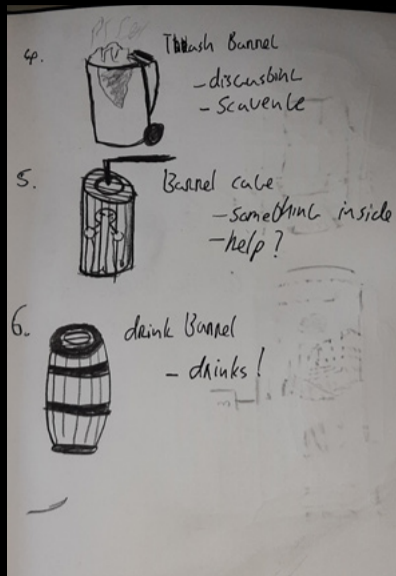 4. Trash Barrel
- disgusting
- scavenge
5. Barrel cage
- something inside
- help?
6. drink Barrel
- drinks!